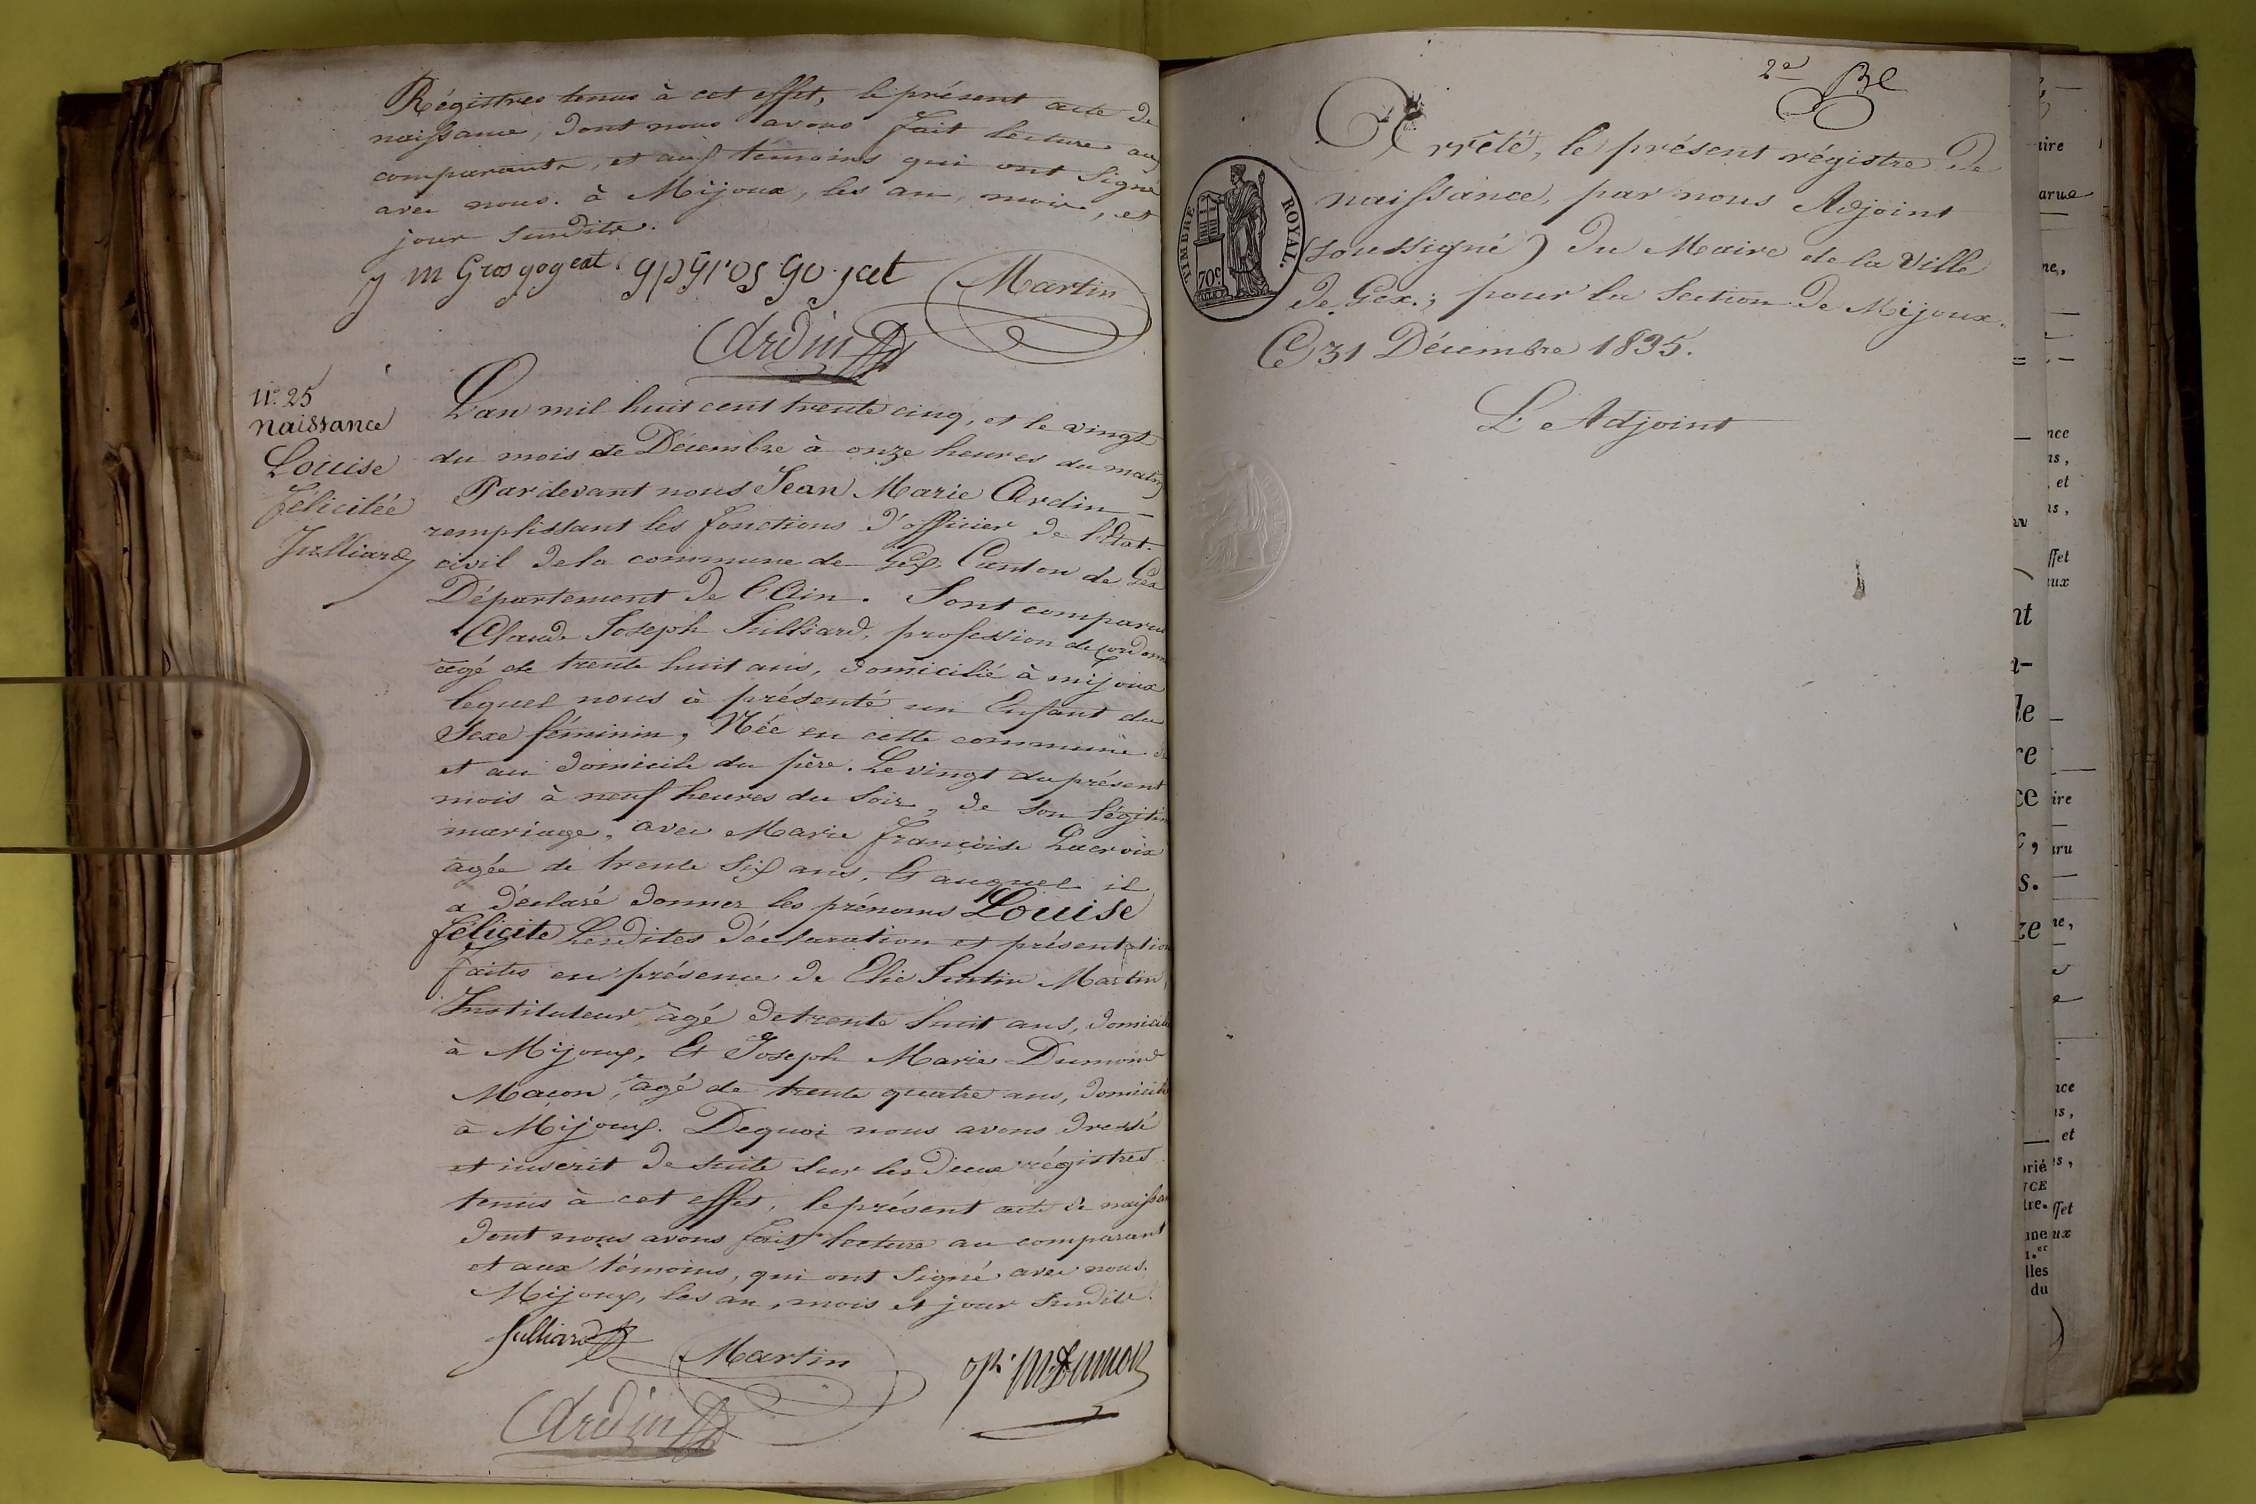 Régistres tenus à cet effet, le présent acte de
naissance, dont nous avons fait lecture aux
comparants, et aux témoins qui ont signé
avec nous. à Mijoux, les an, mois, et
jour susdits.
j m Grosgogeat. gpgros gojat Martin
Ardin
N.º 25
Naissance
Louise
Félicitée
Julliard
L'an mil huit cent trente cinq, et le vingt
du mois de Décembre à onze heures du matin
Pardevant nous Jean Marie Ardin
remplissant les fonctions d'officier de l'État
civil de la commune de Gex, Canton de Gex
Département de l'Ain. Sont comparu
Claude Joseph Julliard, profession de Cordonn
agé de trente huit ans, domicilié à mijoux
lequel nous à présenté un Enfant du
Sexe féminin, Née en cette commune
et au domicile du père. Le vingt du présent
mois à neuf heures du soir, de son légitim
mariage, avec Marie françoise Lacroix
agée de trente six ans, Et auquel il
a déclaré donner les prénoms Louise
félicite Lesdites déclaration et présentation
faites en présence de Elie Martin,
Instituteur âgé de trente huit ans, domicilié
à Mijoux, Et Joseph Marie Dumond
Maçon, agé de trente quatre ans, domicilié
à Mijoux. De quoi nous avons dressé
et inscrit de suite sur les deux régistres
tenus à cet effet, le présent acte de naissan
dont nous avons fait lecture au comparant
et aux témoins, qui ont signé avec nous.
Mijoux, les an, mois et jour susdits.
Julliard Martin
Ardin
2e
TIMBRE ROYAL.
70c
Arrêté, le présent régistre de
naissance, par nous Adjoint
(soussigné) du Maire de la Ville
de Gex; pour la Section de Mijoux.
Ce 31 Décembre 1835.
L'Adjoint